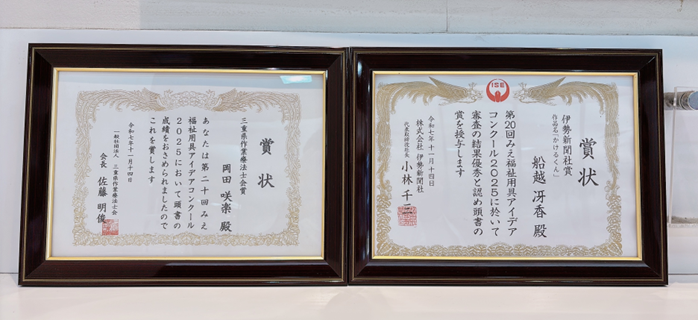 賞状
三重県作業療法士会賞
岡田 咲楽 殿
あなたは第二十回みえ
福祉用具アイデアコンクール
2025において頭書の
成績をおさめられましたので
これを賞します
令和七年十一月十四日
一般社団法人 三重県作業療法士会
会長 佐藤 明俊
ISE
賞状
伊勢新聞社賞
作品名「かけるくん」
船越 冴香 殿
第20回みえ福祉用具アイデア
コンクール2025に於いて
審査の結果優秀と認め頭書の
賞を授与します
令和七年十一月十四日
株式会社 伊勢新聞社
代表取締役社長 小林 千三